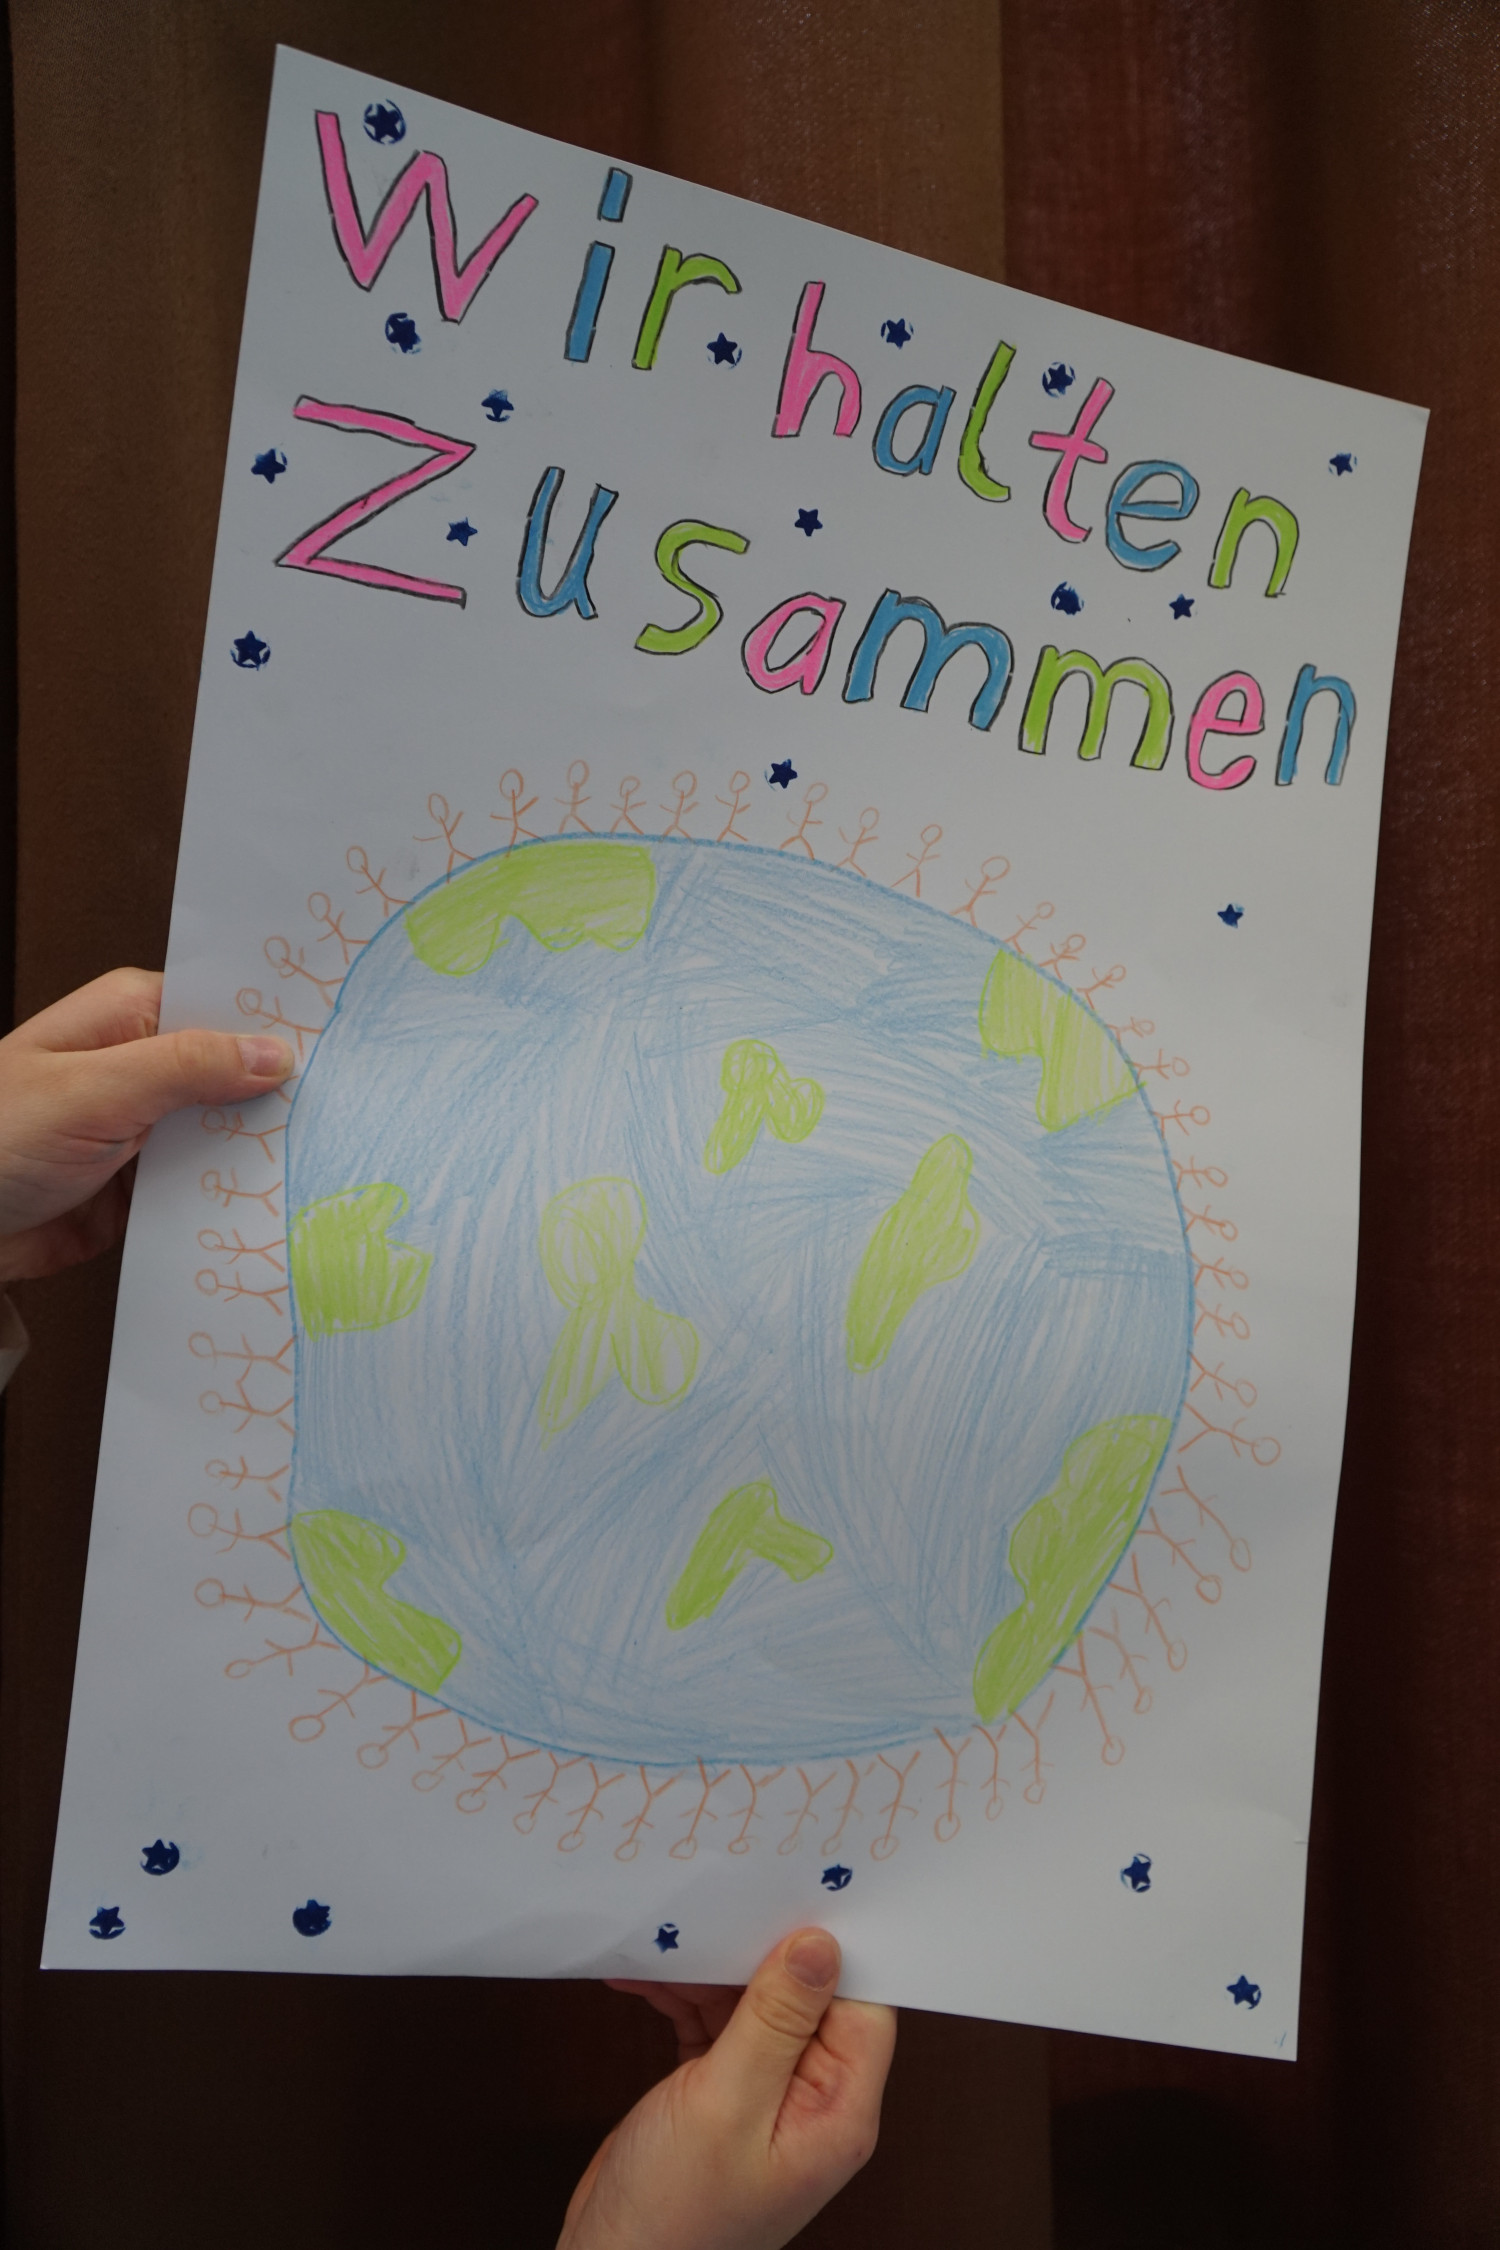 Wir halten
Zusammen